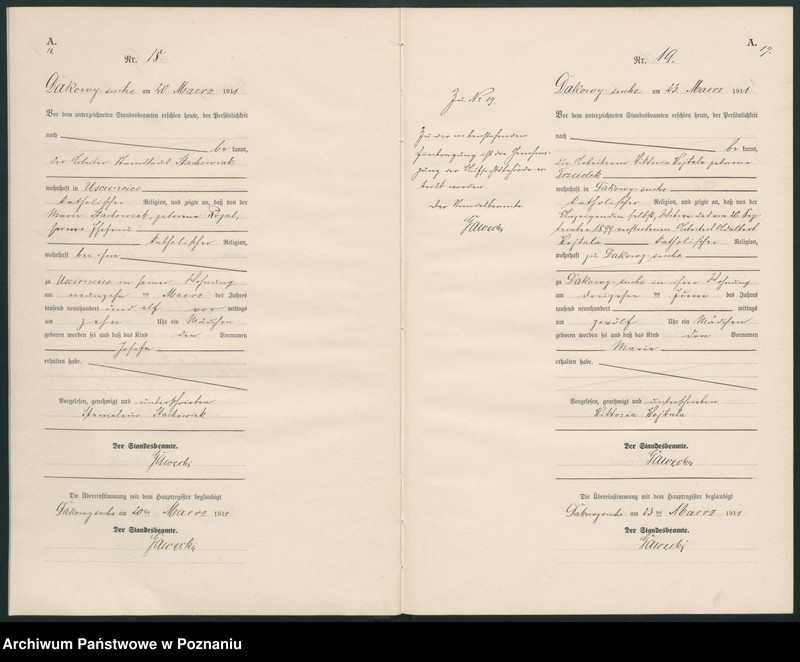 A.
18.
Nr. 18.
Dakowy suche am 20 Maerz 1911
Vor dem unterzeichneten Standesbeamten erschien heute, der Persönlichkeit
nach
be kannt,
der Arbeiter Stanislaus Stachowiak
wohnhaft in Usciencice
katholischer Religion, und zeigte an, daß von der
Marie Stachowiak, geborene Rogal,
seiner Ehefrau
katholischer Religion,
wohnhaft bei ihm
zu Usciencice in seiner Wohnung
am neunzehn ten Maerz des Jahres
tausend neunhundert und elf vor mittags
um zehn Uhr ein Mädchen
geboren worden sei und daß das Kind den Vornamen
Josefa
erhalten habe.
Vorgelesen, genehmigt und unterschrieben
Stanislaus Stachowiak
Der Standesbeamte.
Gawecki
Die Übereinstimmung mit dem Hauptregister beglaubigt
Dakowysuche am 20ten Maerz 1911
Der Standesbeamte.
Gawecki
Zu Nr 19.
Zu der nebenstehenden
Eintragung ist die Genehmi-
gung der Aufsichtsbehörde er-
teilt worden.
Der Standesbeamte
Gawecki
A.
19.
Nr. 19.
Dakowy suche am 23 Maerz 1911
Vor dem unterzeichneten Standesbeamten erschien heute, der Persönlichkeit
nach
be kannt,
die Arbeiterin Viktoria Wojtala geborene
wohnhaft in Dakowy suche
katholischer Religion, und zeigte an, daß von der
Anzeigenden selbst, Witwe des am 20. Sep-
tember 1899 verstorbenen Arbeiters Adalbert
Wojtala katholischer Religion,
wohnhaft zu Dakowy suche
zu Dakowy suche in ihrer Wohnung
am dreizehn ten Juni des Jahres
tausend neunhundert mittags
um zwölf Uhr ein Mädchen
geboren worden sei und daß das Kind den Vornamen
Marie
erhalten habe.
Vorgelesen, genehmigt und unterschrieben
Viktoria Wojtala
Der Standesbeamte.
Gawecki
Die Übereinstimmung mit dem Hauptregister beglaubigt
Dakowysuche am 23ten Maerz 1911
Der Standesbeamte.
Gawecki
Archiwum Państwowe w Poznaniu